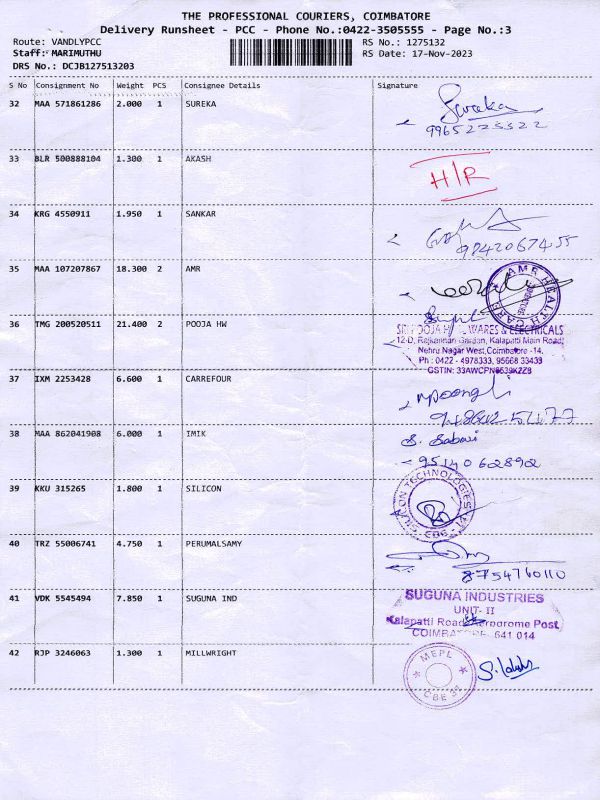 THE PROFESSIONAL COURIERS, COIMBATORE
Delivery Runsheet - PCC - Phone No.:0422-3505555 - Page No.:3
Route: VANDLYPCC RS No.: 1275132
Staff: MARIMUTHU RS Date: 17-Nov-2023
DRS No.: DCJB127513203
S No Consignment No Weight PCS Consignee Details Signature
32 MAA 571861286 2.000 1 SUREKA Sureka
9965225522
33 BLR 500888104 1.300 1 AKASH H/R
34 KRG 4550911 1.950 1 SANKAR
9842067455
35 MAA 107207867 18.300 2 AMR AMR HEALTH CARE
36 TMG 200520511 21.400 2 POOJA HW
SRI POOJA H/WARES & ELECTRICALS
12-D, Rajkannan Garden, Kalapatti Main Road,
Nehru Nagar West, Coimbatore -14.
Ph : 0422 - 4978333, 95668 33433
GSTIN: 33AWCPN8539K2Z8
37 IXM 2253428 6.600 1 CARREFOUR
38 MAA 862041908 6.000 1 IMIK S. Sabari
9514062892
39 KKU 315265 1.800 1 SILICON SILICON TECHNOLOGIES CBE
40 TRZ 55006741 4.750 1 PERUMALSAMY
8754760110
41 VDK 5545494 7.850 1 SUGUNA IND SUGUNA INDUSTRIES
UNIT- II
Kalapatti Road, Aerodrome Post
COIMBATORE- 641 014
42 RJP 3246063 1.300 1 MILLWRIGHT MEPL
CBE 37